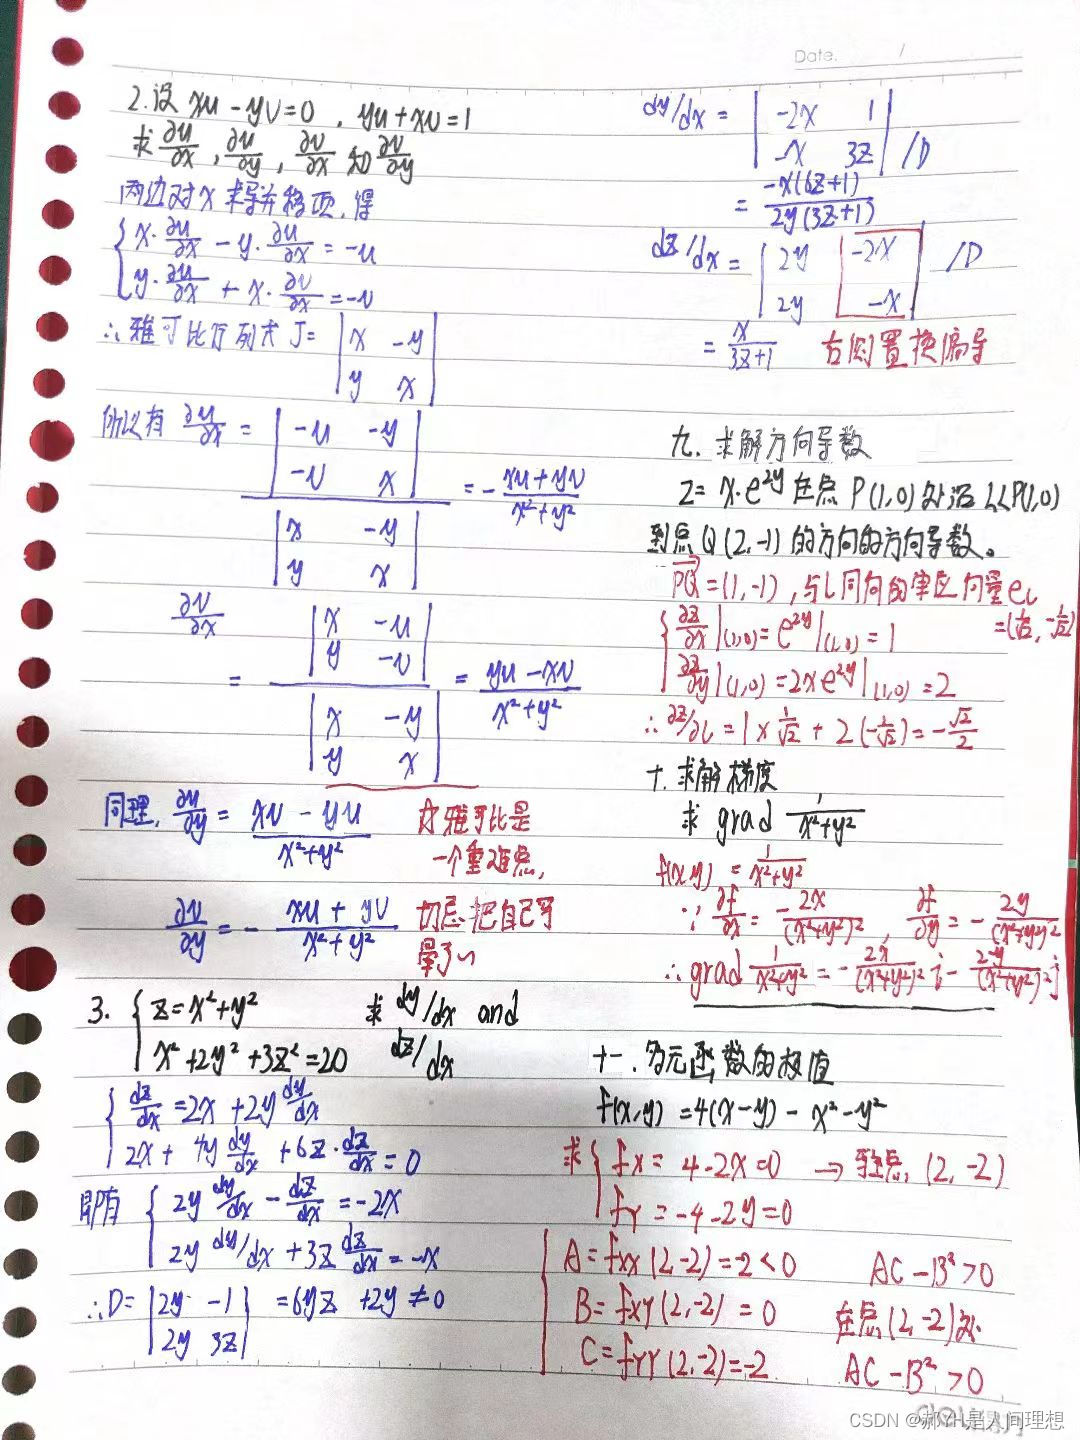 Date. /
2.设 xu-yv=0 , yu+xv=1
求 ∂u/∂x , ∂u/∂y , ∂v/∂x 和 ∂v/∂y
两边对x求导并移项,得
{ x·∂u/∂x - y·∂u/∂x = -u
{ y·∂u/∂x + x·∂v/∂x = -v
∴雅可比行列式 J= | x -y |
| y x |
所以有 ∂u/∂x = | -u -y |
| -v x |
| x -y |
| y x |
= - (xu+yv)/(x²+y²)
∂v/∂x
= | x -u |
| y -v |
| x -y |
| y x |
= (yu-xv)/(x²+y²)
同理, ∂u/∂y = (xv-yu)/(x²+y²)
☆雅可比是
一个重难点,
∂v/∂y = - (xu+yv)/(x²+y²)
切忌把自己写
晕了~
3. { z=x²+y²
{ x²+2y²+3z²=20
求 dy/dx and
dz/dx
{ dz/dx = 2x + 2y dy/dx
{ 2x + 4y dy/dx + 6z·dz/dx = 0
即有 { 2y dy/dx - dz/dx = -2x
{ 2y dy/dx + 3z dz/dx = -x
∴D= | 2y -1 | = 6yz + 2y ≠ 0
| 2y 3z |
dy/dx = | -2x 1 |
| -x 3z | /D
= -x(6z+1)/2y(3z+1)
dz/dx = | 2y -2x | /D
| 2y -x |
= x/(3z+1) 右侧置换偏导
九. 求解方向导数
z= x·e^2y 在点 P(1,0)处沿从P(1,0)
到点Q(2,-1)的方向的方向导数。
PQ=(1,-1),与l同向的单位向量e_l
=(1/√2, -1/√2)
{ ∂z/∂x |(1,0) = e^2y |(1,0) = 1
{ ∂z/∂y |(1,0) = 2xe^2y |(1,0) = 2
∴ ∂z/∂l = 1×1/√2 + 2(-1/√2) = -√2/2
十.求解梯度
求 grad 1/(x²+y²)
f(x,y) = 1/(x²+y²)
∵ ∂f/∂x = -2x/(x²+y²)² , ∂f/∂y = - 2y/(x²+y²)²
∴ grad 1/(x²+y²) = - 2x/(x²+y²)² i - 2y/(x²+y²)² j
十一.多元函数的极值
f(x,y) = 4(x-y) - x²-y²
求{ fx = 4-2x=0 → 驻点 (2,-2)
{ fy = -4-2y=0
{ A = fxx(2,-2) = -2<0 AC-B²>0
B = fxy(2,-2) = 0 在点(2,-2)处
C = fyy(2,-2) = -2 AC-B²>0
CSDN @郝YH是人间理想